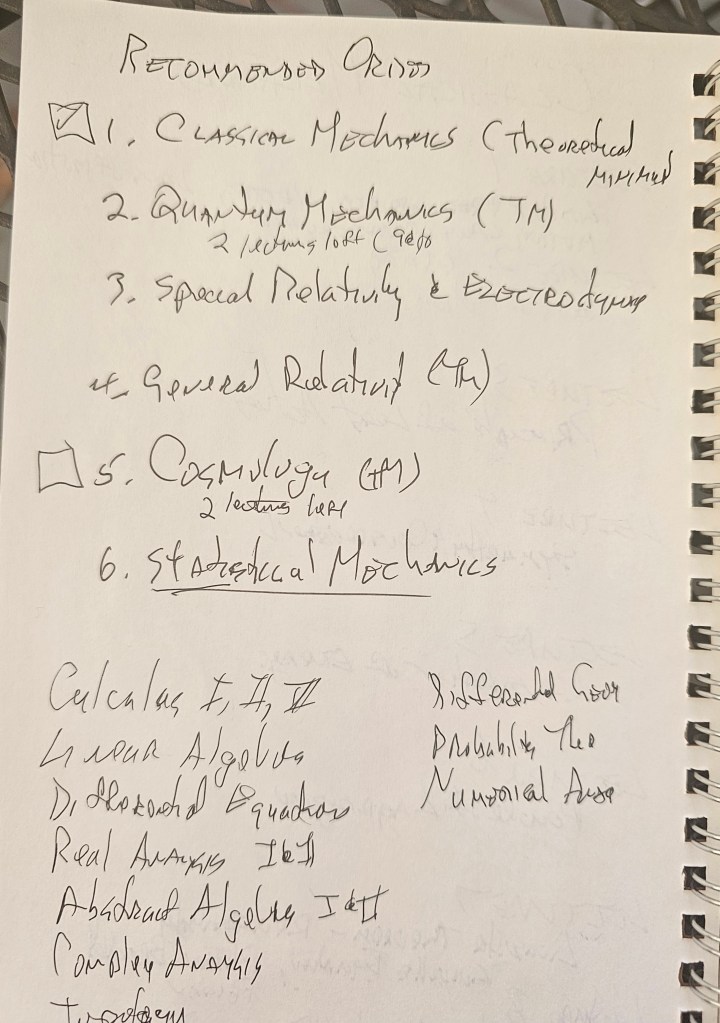 RECOMMENDED ORDER
1. CLASSICAL MECHANICS (Theoretical
MINIMUM
2. QUANTUM MECHANICS (TM)
2 lectures left (9&10
3. Special Relativity & ELECTRODYNAMICS
4. General Relativity (TM)
5. Cosmology (TM)
2 lectures left
6. Statistical Mechanics
Calculus I, II, III
Linear Algebra
Differential Equations
Real Analysis I & II
Abstract Algebra I & II
Complex Analysis
Topology
Differential Geom
Probability Theo
Numerical